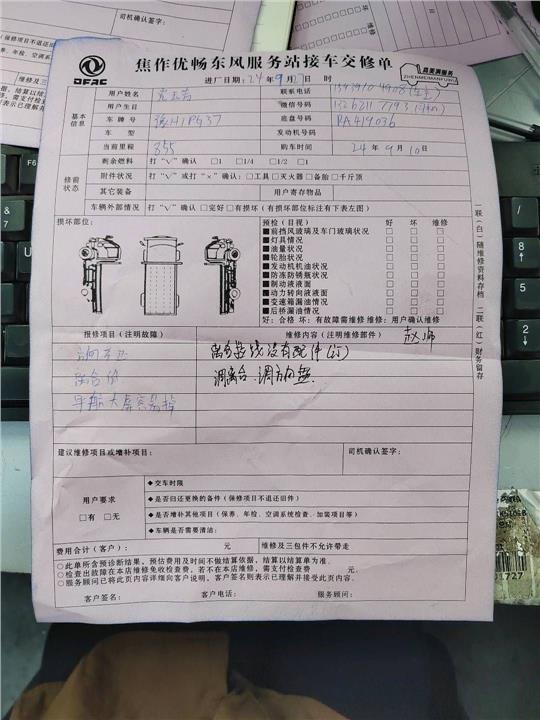 焦作优畅东风服务站接车交修单
DFAC
真美满服务
ZHENMEIMANFUWU
进厂日期：24年9月27日 时
基本信息
用户姓名 联系电话
用户生日 微信号码
车牌号 底盘号码 RA419036
车型 发动机号码
当前里程 355 购车时间 24年9月10日
修前状态
剩余燃料 打“V”确认 □1 □1/4 □1/2 □1
附件状况 打“V”或打“×”确认：□工具□灭火器□备胎□千斤顶
其它装备 用户寄存物品
车辆外部情况 打“V”确认□完好□有损坏（有损坏部位标注有下表左图）
损坏部位：
预检（目视） 好 坏 维修
■前挡风玻璃及车门玻璃状况
■灯具情况
■油量状况
■轮胎状况
■发动机机油状况
■防冻防锈瓶状况
■制动液液面
■动力转向液液面
■变速箱漏油情况
■后桥漏油情况
好：合格 坏：有故障需维修 维修：用户确认维修
报修项目（注明故障） 维修内容（注明维修部件）
离合器线没有配件(订)
离合低 调离合.调方向盘
导航大屏容易掉
建议维修项目或增补项目： 司机确认签字：
用户要求
□有 □无
◆交车时限
◆是否归还更换的备件（保修项目不退还旧件）
◆是否增补其他项目（保养、年检、空调系统检查、加装项目等）
◆车辆是否需要清洁：
费用合计（客户）： 元 维修及三包件不允许带走
○此单所含预诊断结果，预估费用及时间不做结算依据，结算以结算单为准.
○检查出故障在本店维修免收检查费，若不在本店维修，需支付检查费 元.
○服务顾问已将此页内容详细向客户说明，客户签名则表示已理解并接受此页内容.
客户签名： 客户电话： 服务顾问：
一联（白）随维修资料存档 二联（红）财务留存
司机确认签字：